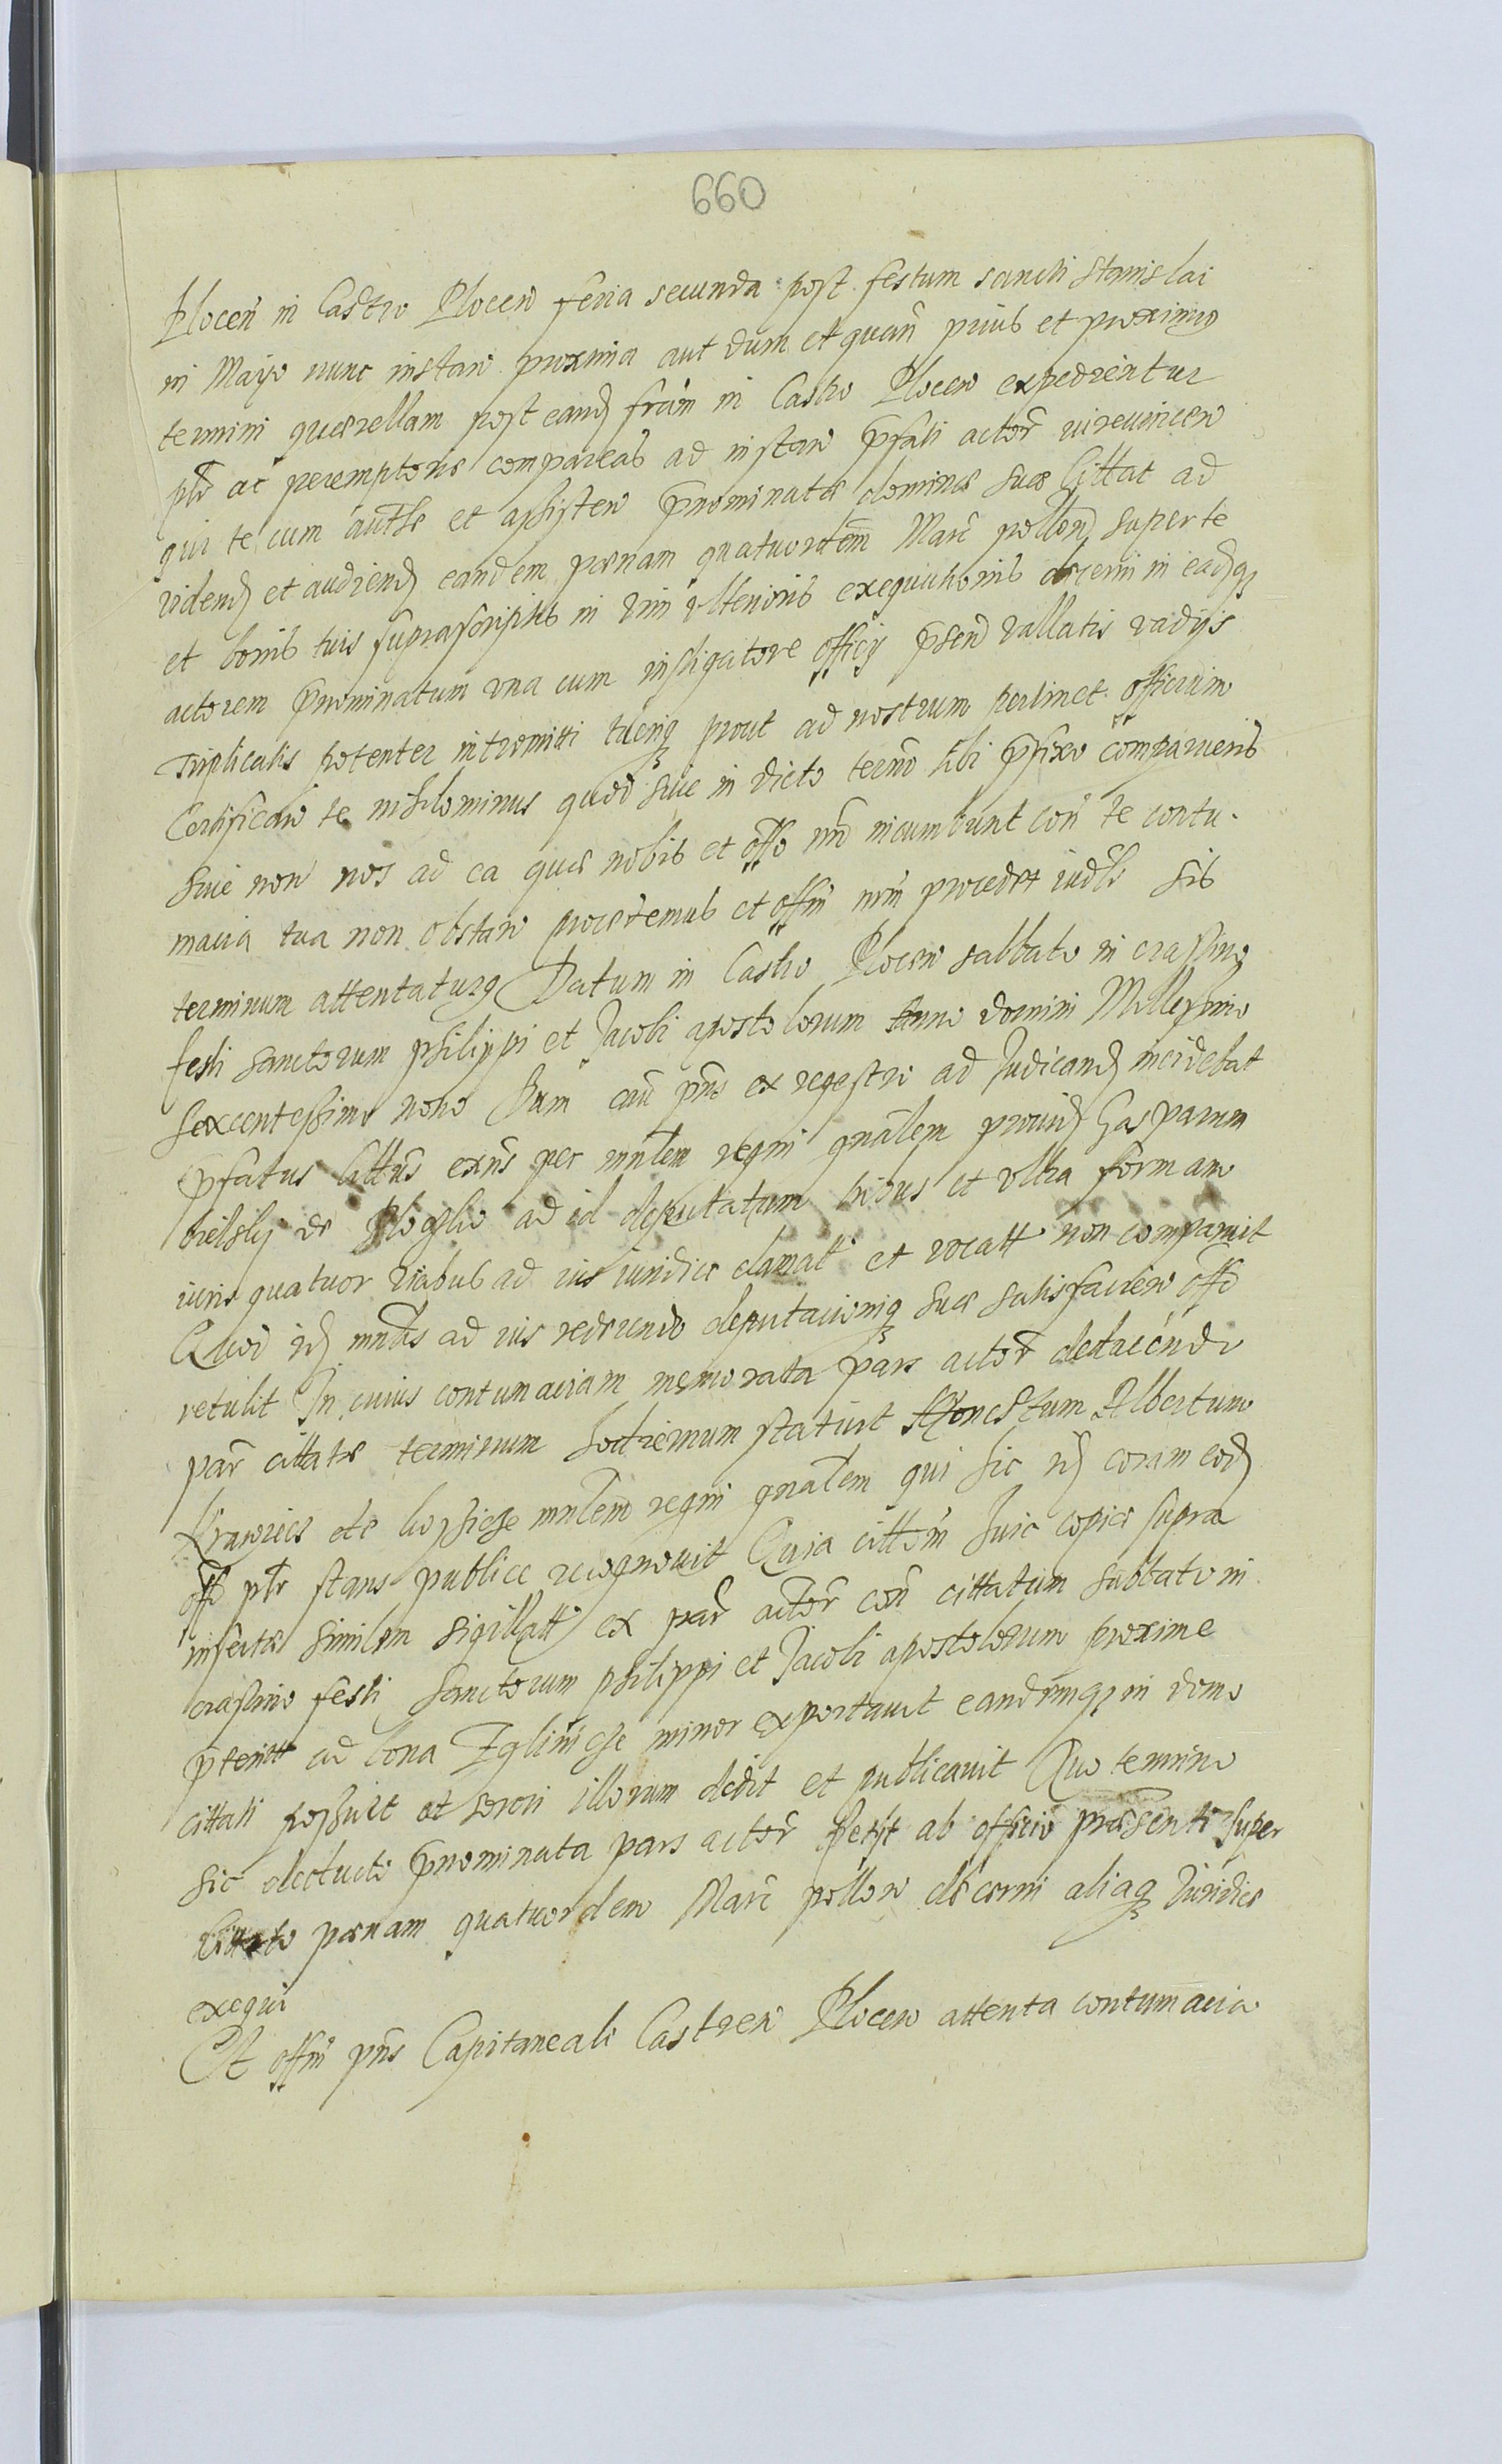 660
Plocen in Castro Plocen feria secunda post festum sancti Stanislai
in Mayo nunc instan proxima aut dum et quan prius et proximo
termini querellam post eand friam in Castro Plocen expedientur
plr ac peremptorie compareas ad instan pfati actor
qui te cum auths et assisten pnominatæ dominæ suæ Cittat ad
videnḍ et audienḍ eandem pœnam quatuordem Marc pollon super te
et bonis tuis suprascriptis in vim vlterioris exequutionis decerni in eadqȝ
actorem pnominatum vna cum instigatore officÿ psen vallatis vadÿs
triplicatis potenter intromitti tueriqȝ prout ad nostrum pertinet officium
Certifican te nihilominus quod siue in dicto termo tibi pfixo comparueris
siue non nos ad ea quæ nobis et offo nro incumbunt con te contu-
macia tua non obstan procedemus et offm nrm procedet iudle sis
terminum attentaturus Datum in Castro Plocen sabbato in crastino
festi sanctorum Philippi et Jacobi apostolorum Anno domini Millesimo
sexcentessimo nono Dum cau pns ex regestro ad Judicanḍ incidebat
pfatus Cittus exns per mnlem regni gnalem prouid Gasparum
bielsky de Ploczko ad id deputatum tribus et vltra forman
iuris quatuor viabus ad ius iuridice clamatt et vocatt non comparuit
Quod iḍ mnlis ad ius redeundo deputationiqȝ suæ satisfacien offo
retulit In cuius contumaciam memorata pars actor deducendo
par cittatæ terminum hodiernum statuit Honestum Albertum
Krawiec de mnlem regni gnalem qui hic iḍ coram eoḍ
offo plr stans publice recognouit Quia cittom huic copiæ supra
insertæ similem sigillatt ex par actor con cittatum sabbato in
crastino festi Sanctorum Philippi et Jacobi apostolorum proxime
pteritt ad bona minor exportauit eandemqȝ in domo
cittati posuit et sorori illorum dedit et publicauit Quo termino
sic deducto pnominata pars actor petÿt ab officio præsenti super
Cittato pœnam quatuordem Marc pollon decerni aliaqȝ Iuridice
exequi
Et offm pns Capitaneale Castren Plocen attenta contumacia